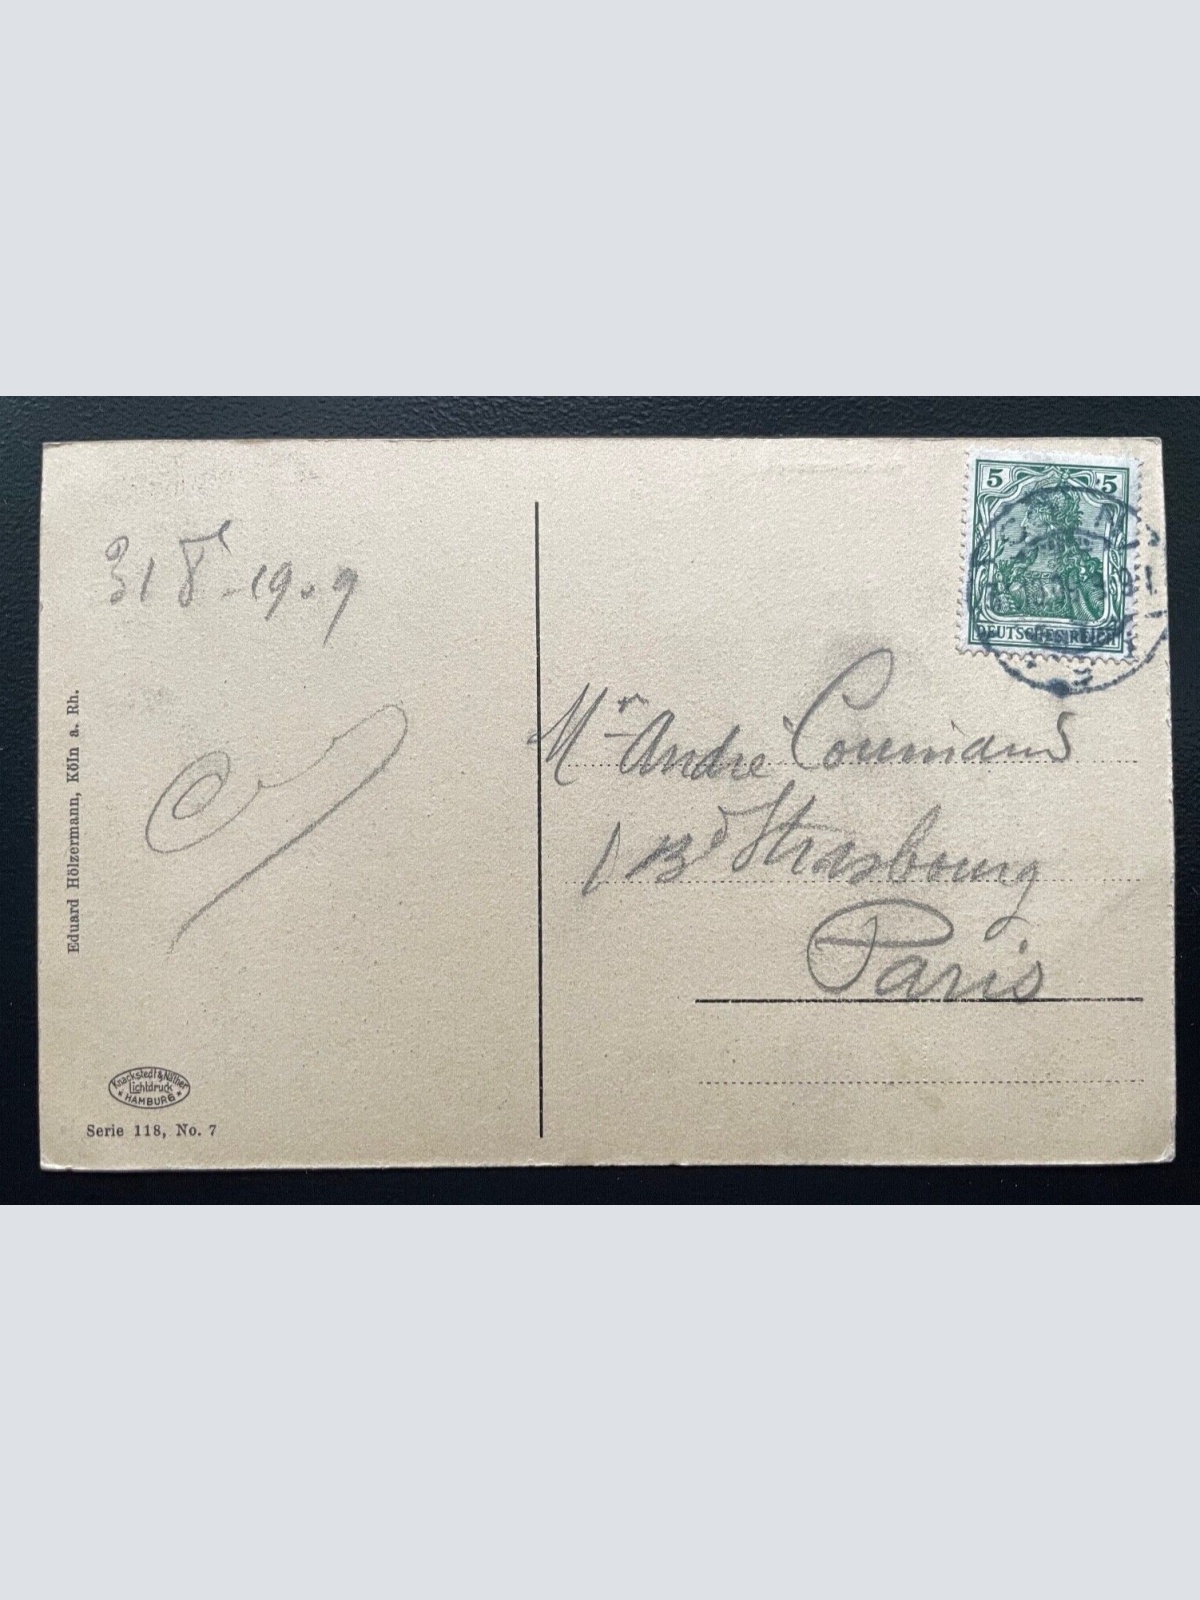 31 8re 1909
Mr André Coumans
1 Bd Strasbourg
Paris
5 5
DEUTSCHES REICH
Eduard Hölzermann, Köln a. Rh.
Knackstedt & Näther
Lichtdruck
HAMBURG
Serie 118, No. 7